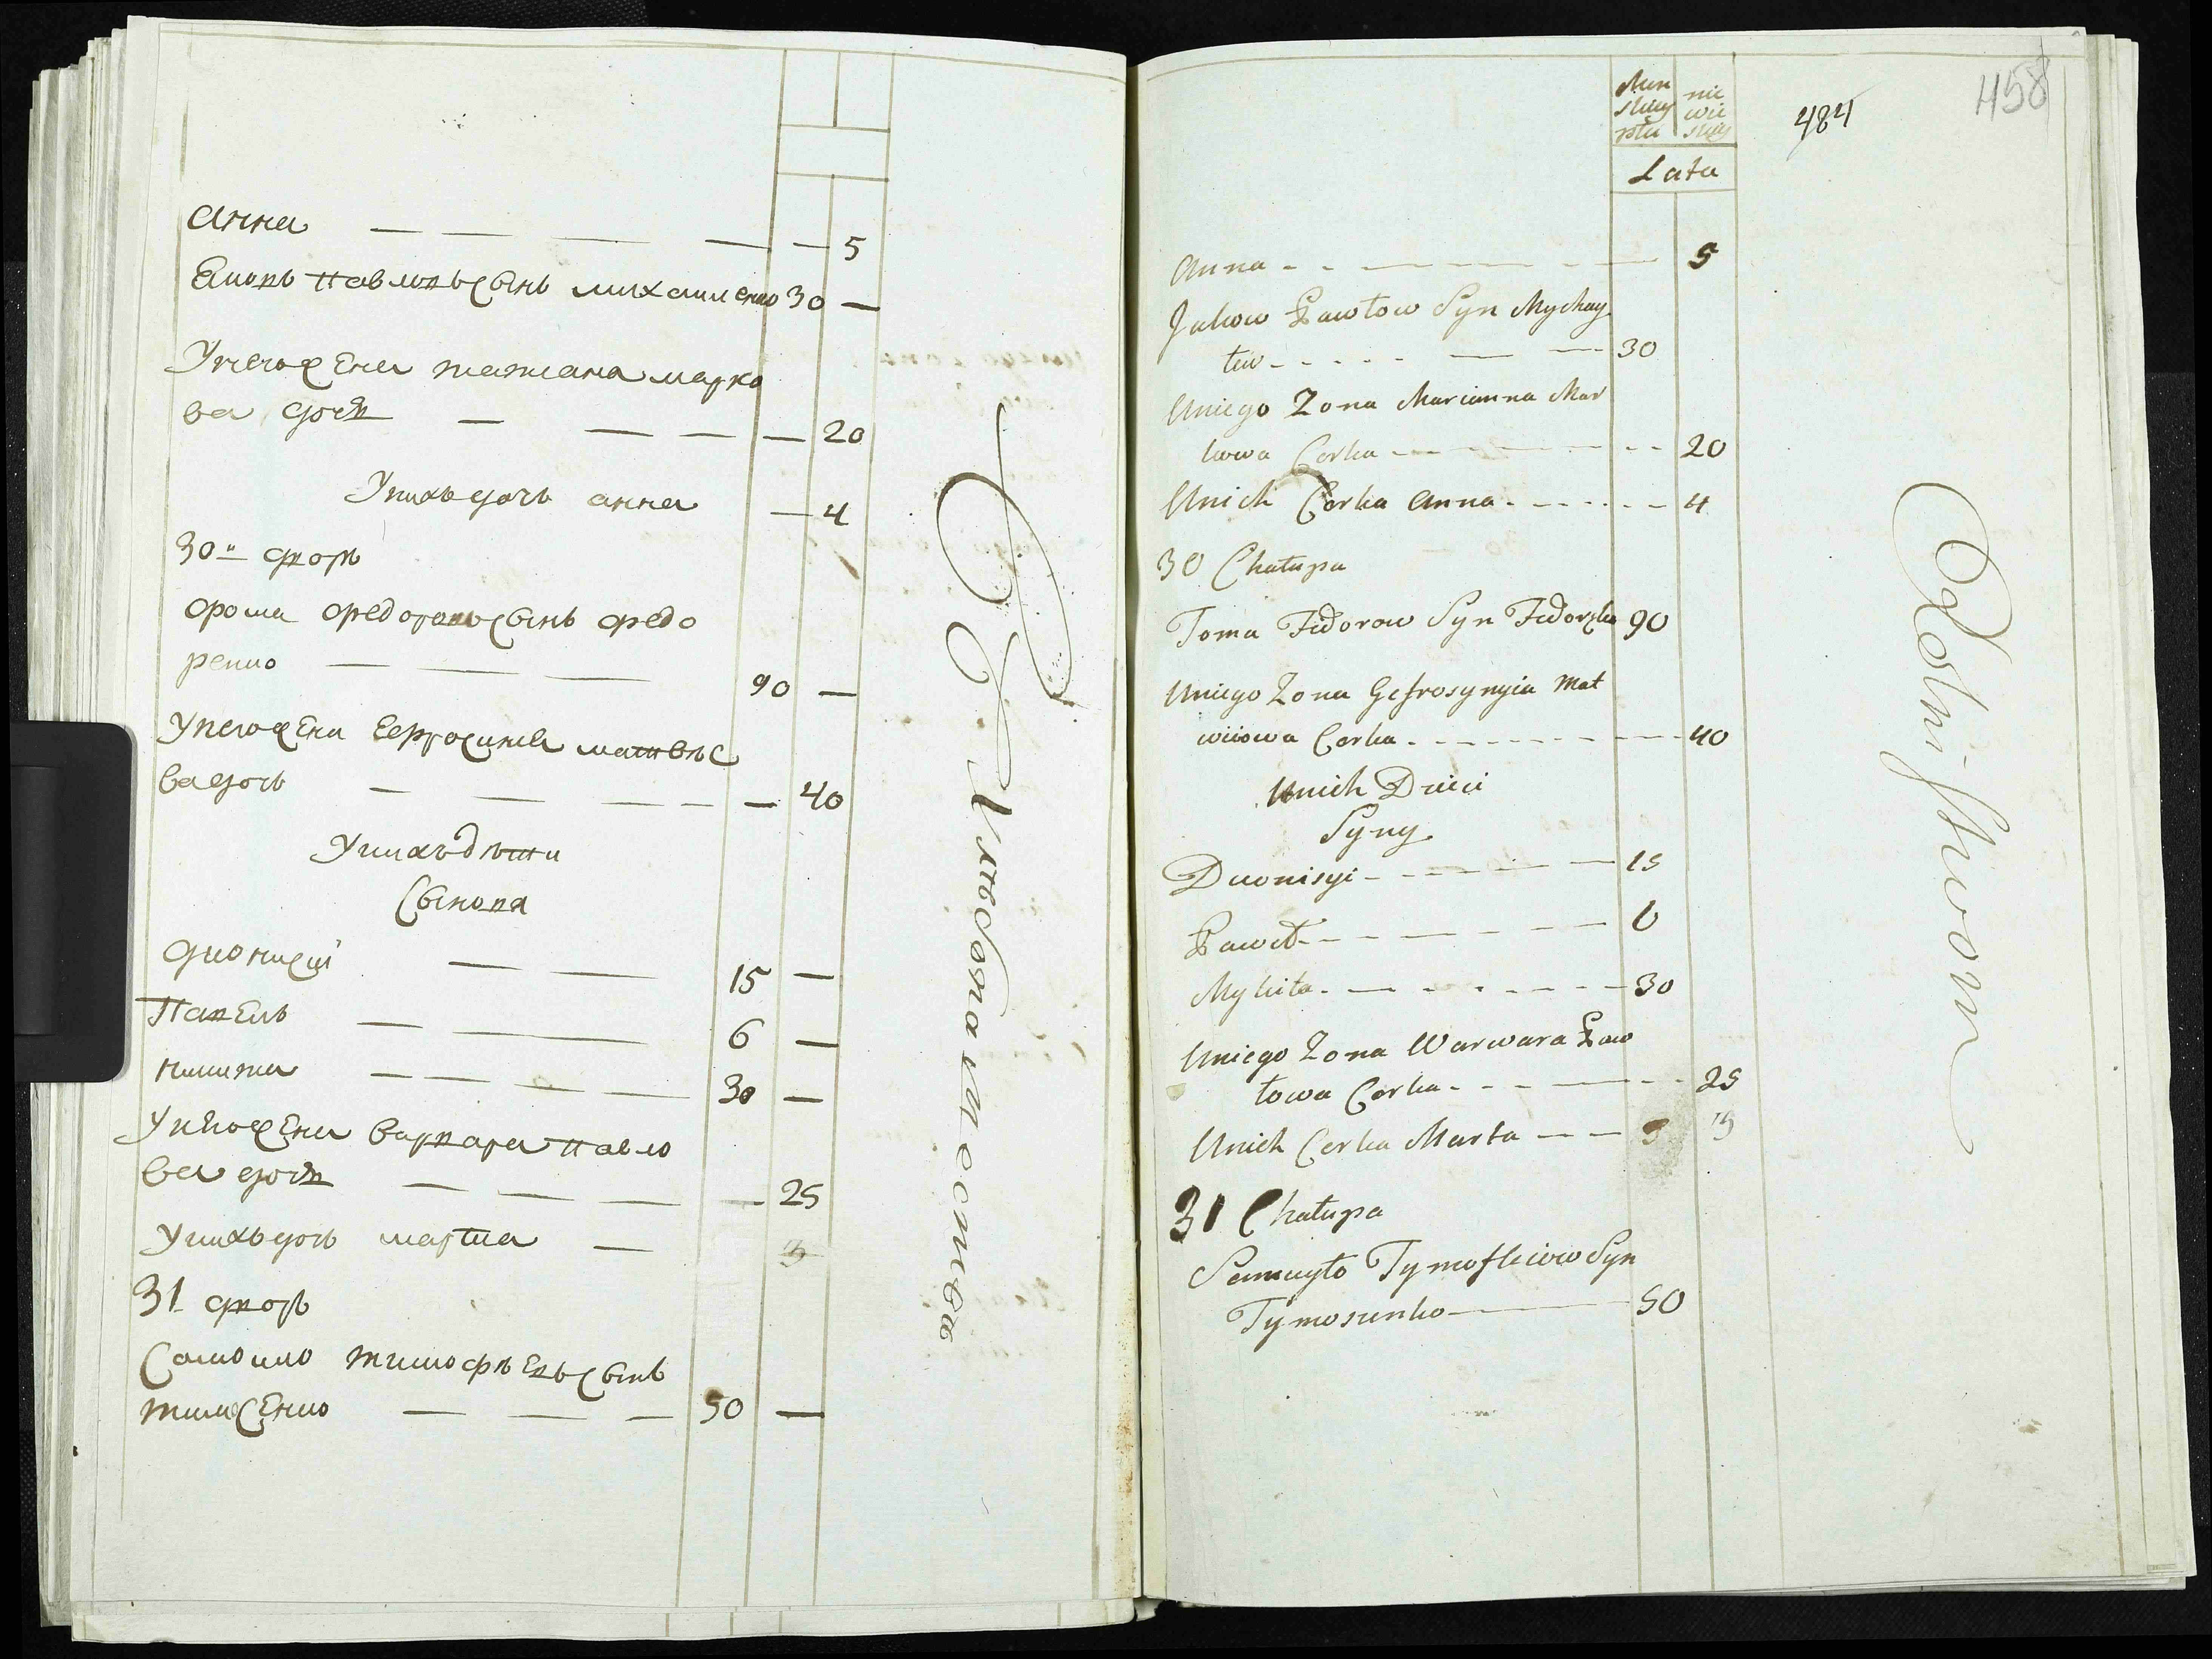 Анна — — — — — 5
Яковъ Павловъ сынъ Михаиленко 30 —
У него жена Татиана Марко
ва дочь — — — — — 20
У нихъ дочь Анна — 4
30й дворъ
Фома Федоровъ сынъ Федо
ренко — — — 90 —
У него жена Евфросиниа Матвѣе
ва дочь — — — — — 40
У нихъ дѣти
Сынова
Дионисий — — 15 —
Павелъ — — 6 —
Никита — — — — 30 —
У него жена Варвара Павло
ва дочь — — — — 25
У нихъ дочь Марфа — 3
31 дворъ
Самоило Тимофѣевъ сынъ
Тимосенко — — — 50 —
Męz
skiey
płci
nie
wie
skiey
Lata
484
458
Anna - - — — — - — 5
Jakow Pawłow Syn Mychay
łew - - - - - — — 30
U niego Zona Marianna Mar
kowa Corka - - - - - - 20
U nich Corka Anna - - - - - - 4
30 Chałupa
Toma Fedorow Syn Fedorzko 90
U niego Zona Gefrosynyia Mat
wiiowa Corka - - - - - - - 40
U nich Dzieci
Syny
Dionisyi - - - - - — 15
Paweł - - - — - — — 6
Mykita - — - - - - - - 30
U niego Zona Warwara Paw
łowa Corka - - - - — - - 25
U nich Corka Marta — — 3 3
31 Chałupa
Samuyło Tymofieiow Syn
Tymosenko — 50